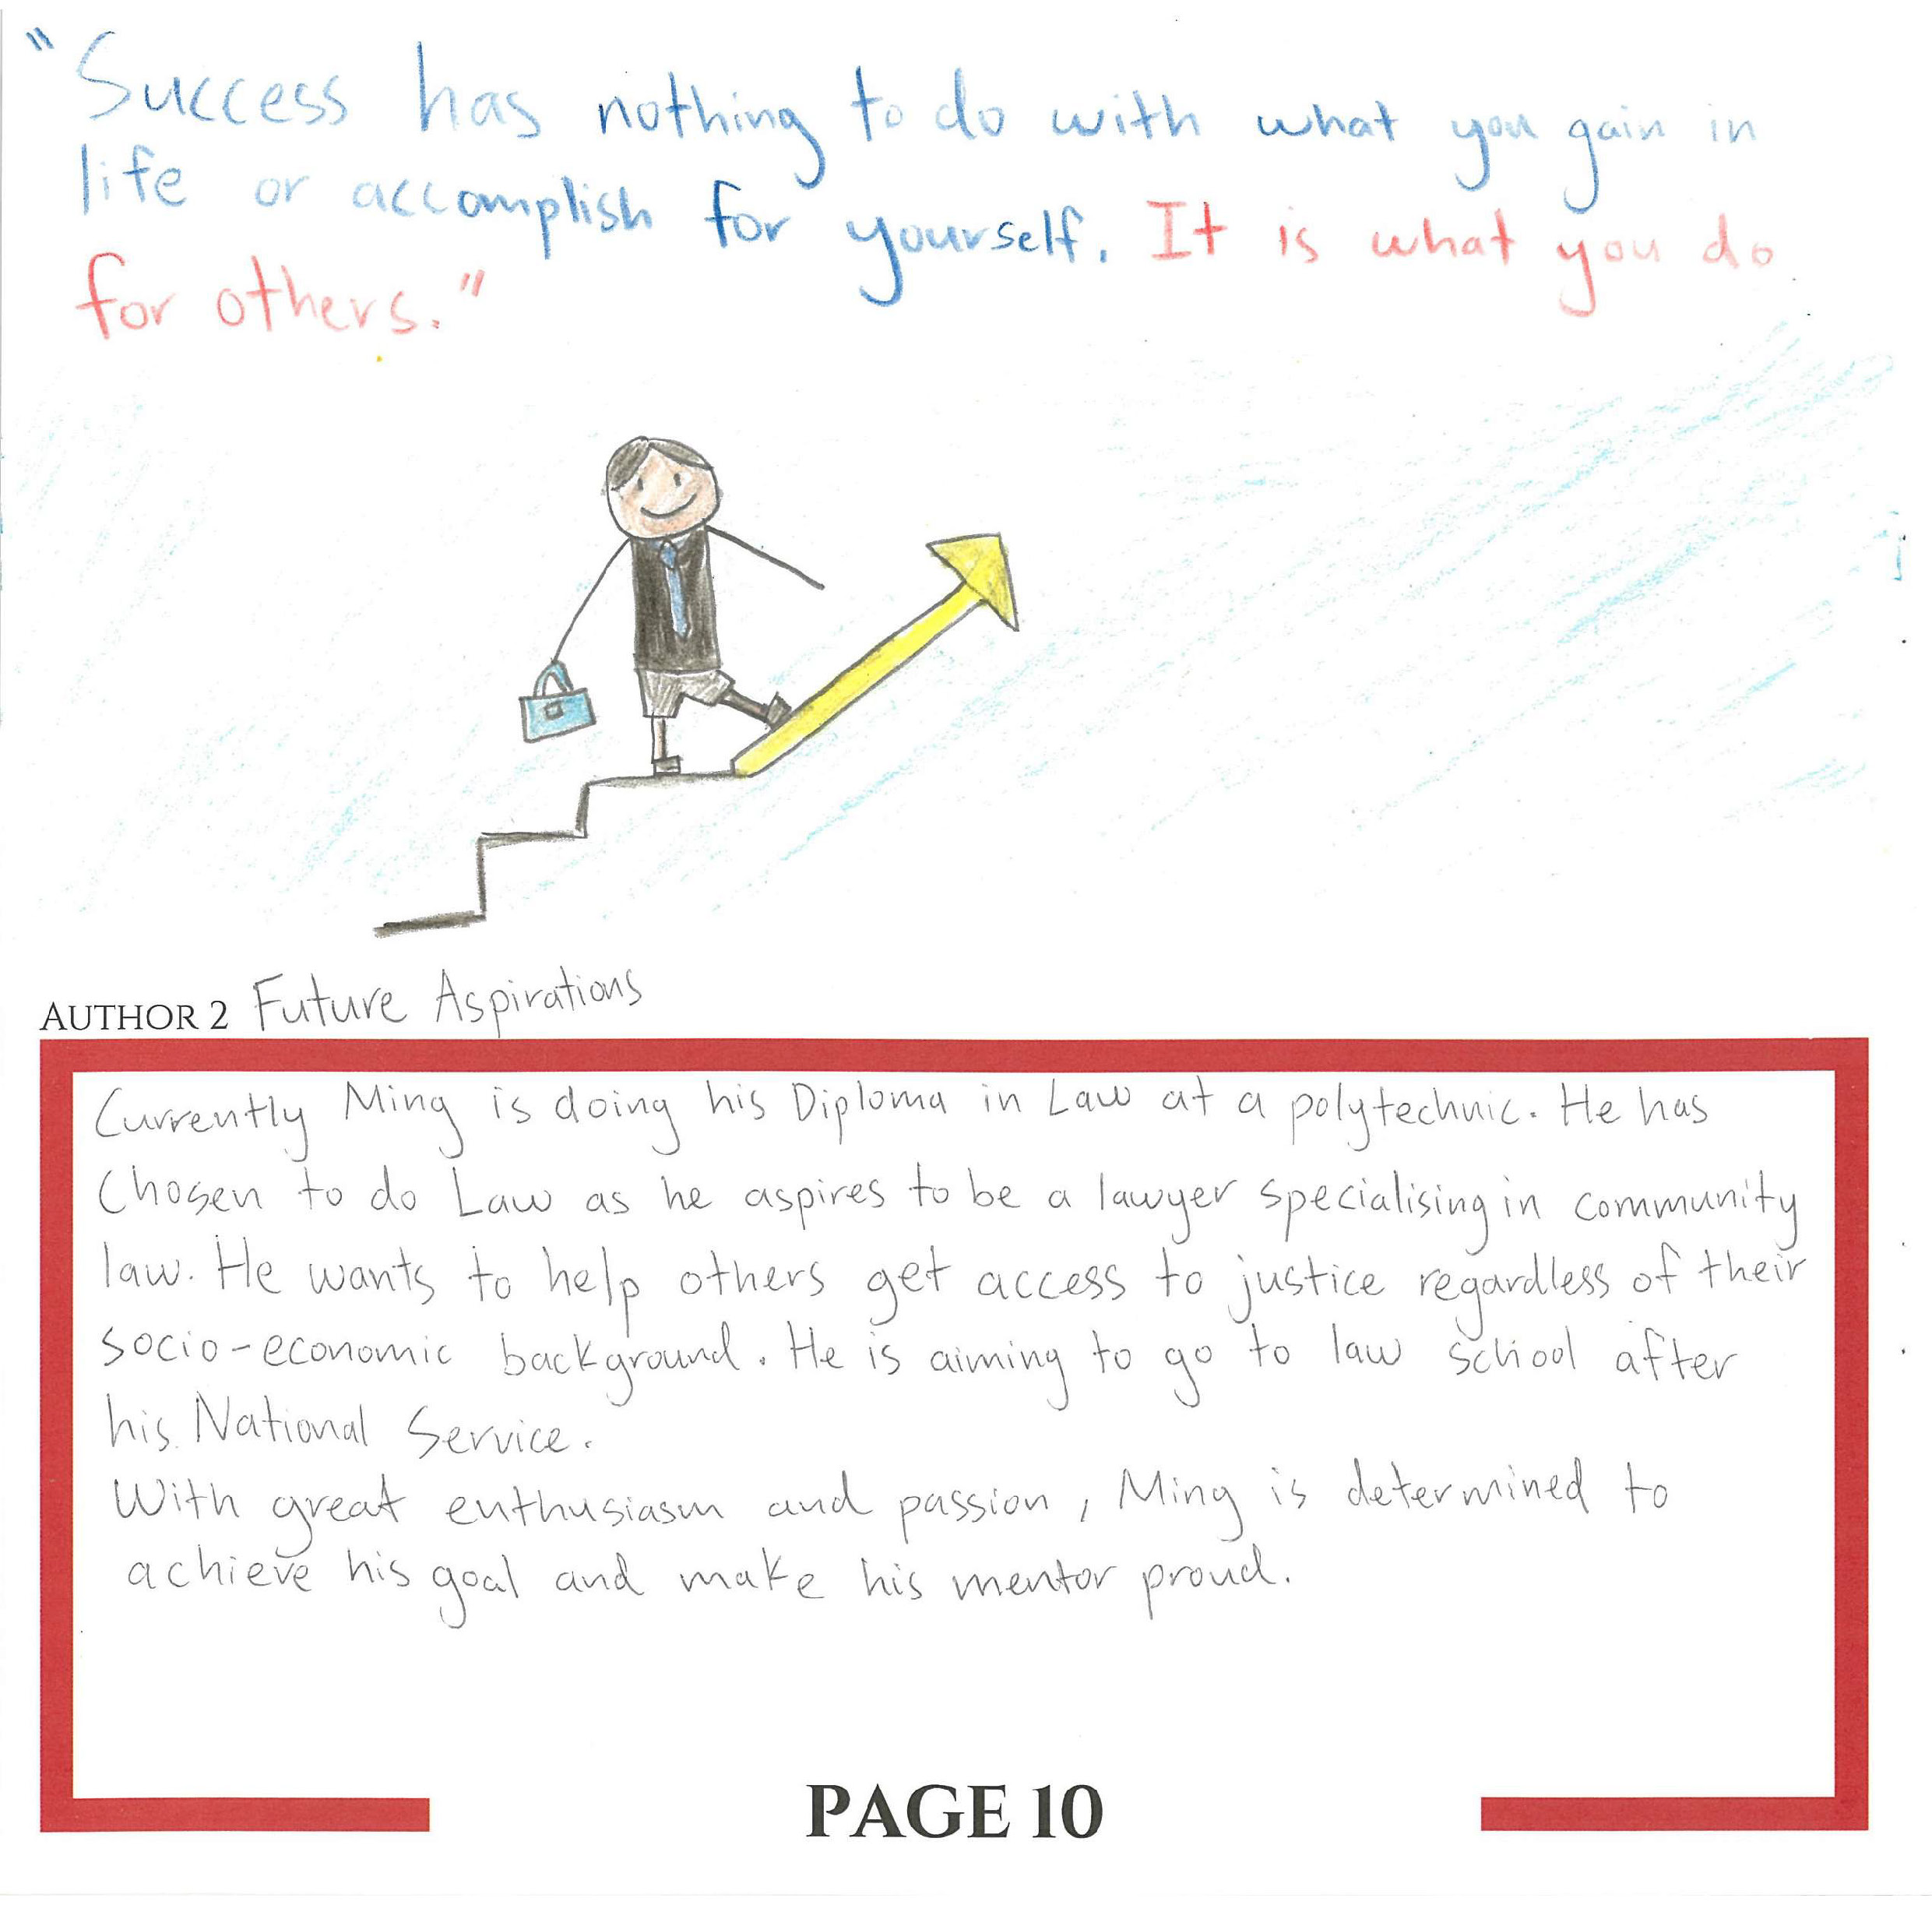 "Success has nothing to do with what you gain in
life or accomplish for yourself. It is what you do
for others."
AUTHOR 2 Future Aspirations
Currently Ming is doing his Diploma in Law at a polytechnic. He has
Chosen to do Law as he aspires to be a lawyer specialising in community
law. He wants to help others get access to justice regardless of their
socio-economic background. He is aiming to go to law school after
his National Service.
With great enthusiasm and passion, Ming is determined to
achieve his goal and make his mentor proud.
PAGE 10